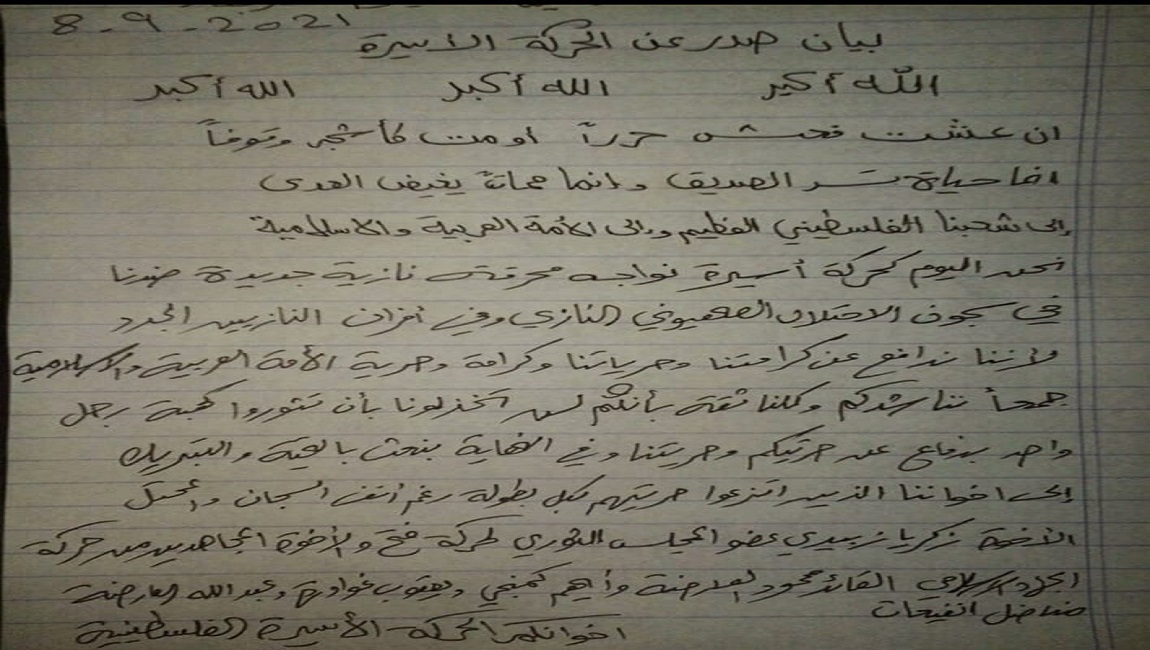 8-9-2021
بيان صدر عن الحركة الاسيرة
الله أكبر الله أكبر الله أكبر
ان عشت فعش حراً او مت كأشجر وقوفاً
اما حياة تسر الصديق وانما مماة يغيض العدى
إلى شعبنا الفلسطيني العظيم وإلى الأمة العربية والاسلامية
نحن اليوم كحركة أسيرة نواجه محرقة نازية جديدة ضدنا
في سجون الاحتلال الصهيوني النازي وفي أفران النازيين الجدد
لأننا ندافع عن كرامتنا وحرياتنا وكرامة وحرية الأمة العربية والاسلامية
جمعاً نناشدكم وكلنا ثقة بأنكم لن تخذلونا بأن تثوروا كهبة رجل
واحد بدفاع عن حرتيكم وحريتنا وفي النهاية نبعث بالتحية والتبريك
إلى اخواننا الذين انتزعوا حريتهم بكل بطولة رغم أنف السجان والمحتل
الأخ زكريا زبيدي عضو المجلس الثوري لحركة فتح والأخوة المجاهدين من حركة
الجهاد الاسلامي القائد محمود العارضة وأيهم كمنجي ويعقوب غوادرة وعبد الله العارضة
مناضل انفيعات
اخوانكم الحركة الأسيرة الفلسطينية